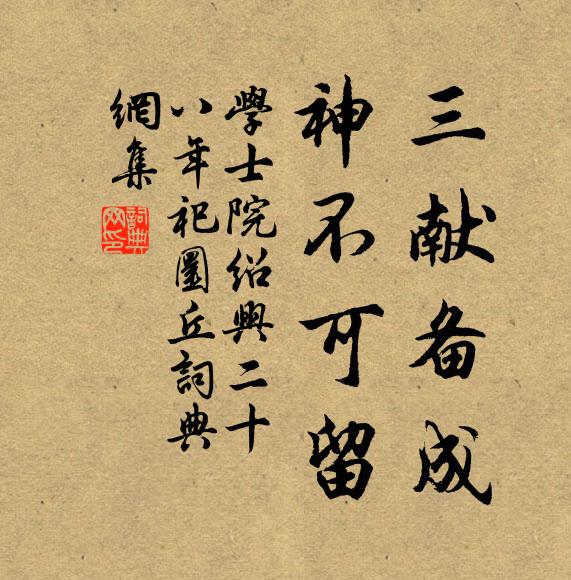 三献备成
神不可留
學士院紹興二十
八年祀圜丘詞典
網集
詞典網印